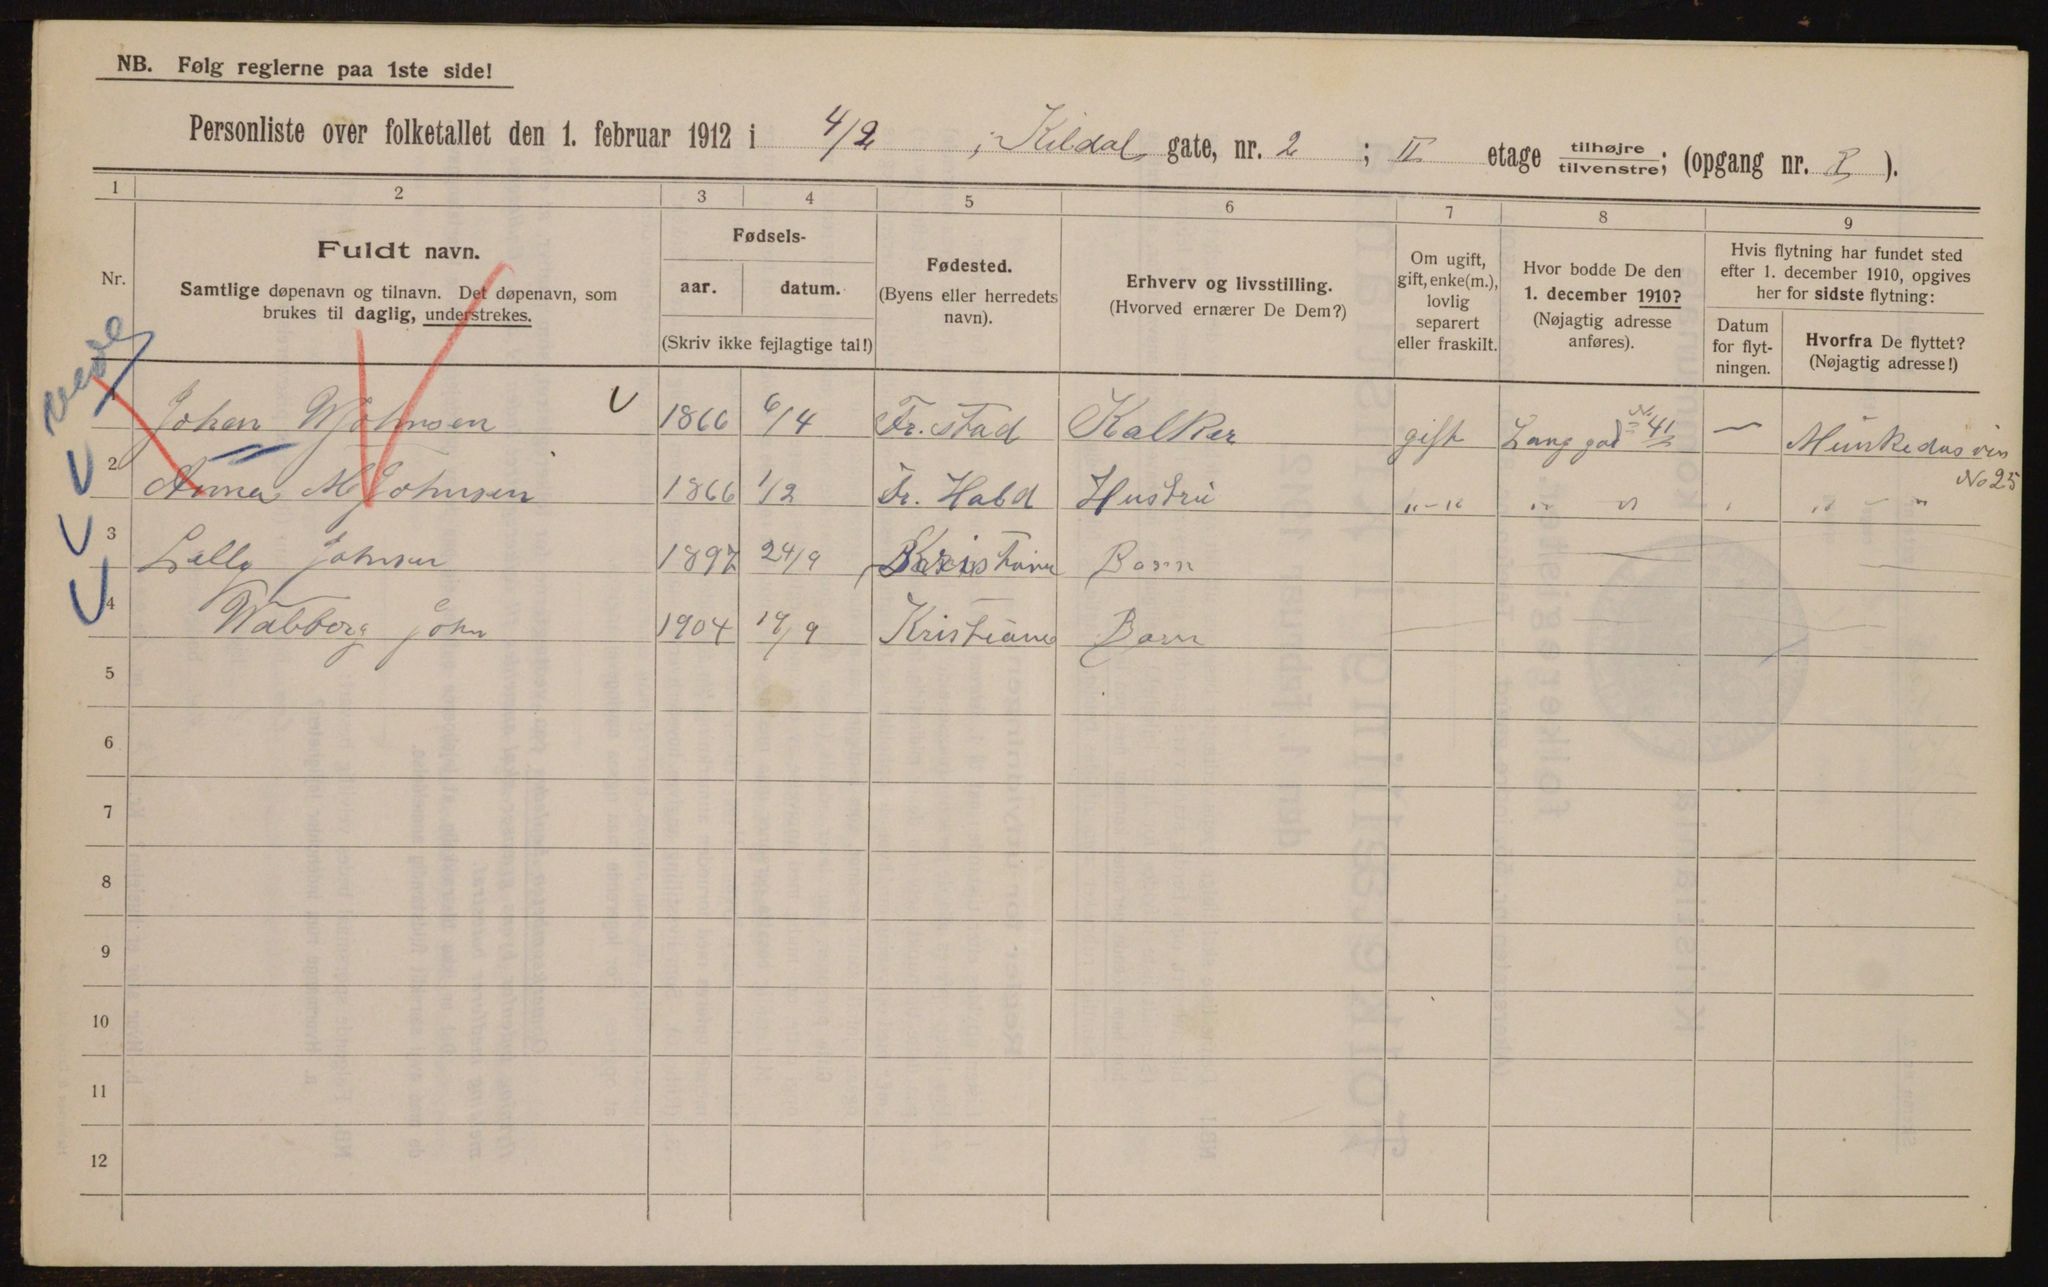 NB. Følg reglerne paa 1ste side!
Personliste over folketallet den 1. februar 1912 i 4/2, Kildal gate, nr. 2; II etage tilhøjre/tilvenstre; (opgang nr. ).
1 2 3 4 5 6 7 8 9
Nr.
Fuldt navn.
Samtlige døpenavn og tilnavn. Det døpenavn, som
brukes til daglig, understrekes.
Fødsels-
aar. datum.
(Skriv ikke fejlagtige tal!)
Fødested.
(Byens eller herredets
navn).
Erhverv og livsstilling.
(Hvorved ernærer De Dem?)
Om ugift,
gift, enke(m.),
lovlig
separert
eller fraskilt.
Hvor bodde De den
1. december 1910?
(Nøjagtig adresse
anføres).
Hvis flytning har fundet sted
efter 1. december 1910, opgives
her for sidste flytning:
Datum
for flyt-
ningen.
Hvorfra De flyttet?
(Nøjagtig adresse!)
1 Johan Wjohnsen 1866 6/4 Fr. stad Kalker gift Lang gad No 41 — Munkedasvin
No 25
2 Anna M Johnsen 1866 1/2 Fr. Hald Hustru „–„ „ „ „ „ – „
3 Lally Johnsen 1897 24/9 Kristiania Barn
4 Walborg John 1904 19/9 Kristiania Barn
5
6
7
8
9
10
11
12